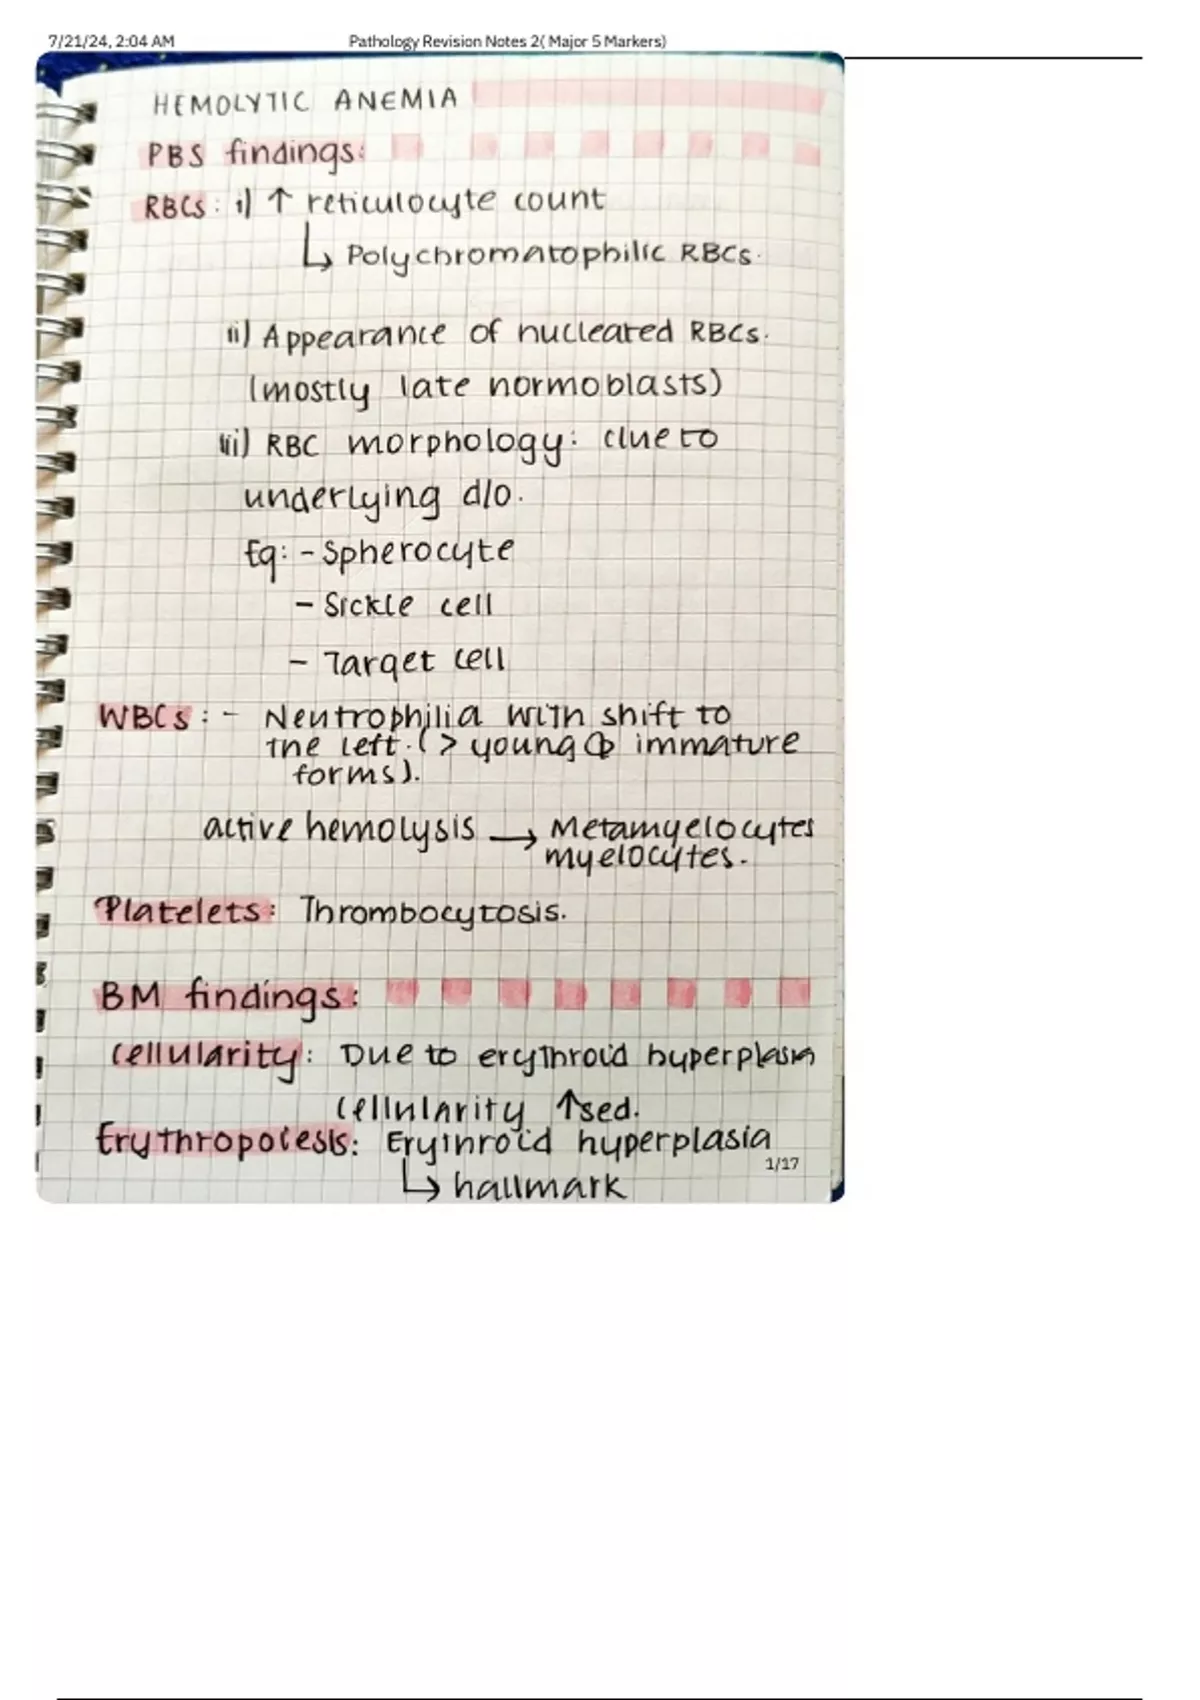 7/21/24, 2:04 AM Pathology Revision Notes 2( Major 5 Markers)
HEMOLYTIC ANEMIA
PBS findings:
RBCs: i) ↑ reticulocyte count
↳ Polychromatophilic RBCs.
ii) Appearance of nucleated RBCs.
(mostly late normoblasts)
iii) RBC morphology: clue to
underlying d/o.
Eg: - Spherocyte
- Sickle cell
- Target cell
WBCs: - Neutrophilia with shift to
the left. (> young immature
forms).
active hemolysis → Metamyelocytes
myelocytes.
Platelets: Thrombocytosis.
BM findings:
Cellularity: Due to erythroid hyperplasia
Cellularity ↑sed.
Erythropoiesis: Erythroid hyperplasia
↳ hallmark
1/17